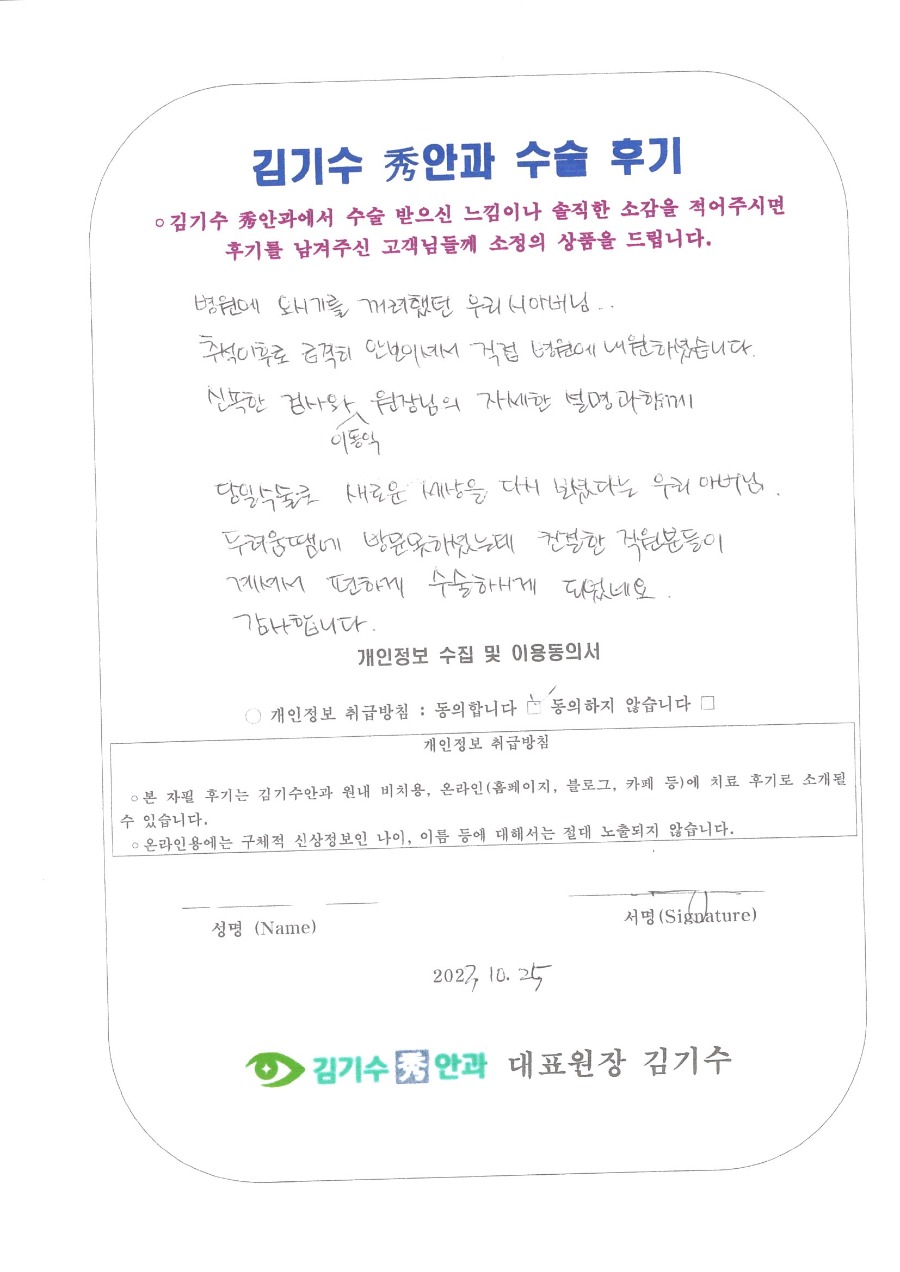 김기수 秀안과 수술 후기
○김기수 秀안과에서 수술 받으신 느낌이나 솔직한 소감을 적어주시면
후기를 남겨주신 고객님들께 소정의 상품을 드립니다.
병원에 오시기를 꺼려했던 우리 시아버님..
추석이후로 급격히 안보이셔서 직접 병원에 내원하셨습니다.
신뜩한 검사와 원장님의 자세한 설명과함께
이동익
당일수술로 새로운 세상을 다시 보셨다는 우리 아버님.
두려움땜에 방문못하셨는데 친절한 직원분들이
계셔서 편하게 수술하시게 되었네요.
감사합니다.
개인정보 수집 및 이용동의서
○ 개인정보 취급방침 : 동의합니다 □ 동의하지 않습니다 □
개인정보 취급방침
○본 자필 후기는 김기수안과 원내 비치용, 온라인(홈페이지, 블로그, 카페 등)에 치료 후기로 소개될
수 있습니다.
○온라인용에는 구체적 신상정보인 나이, 이름 등에 대해서는 절대 노출되지 않습니다.
성명 (Name)
서명(Signature)
2023, 10. 25
김기수 秀 안과 대표원장 김기수